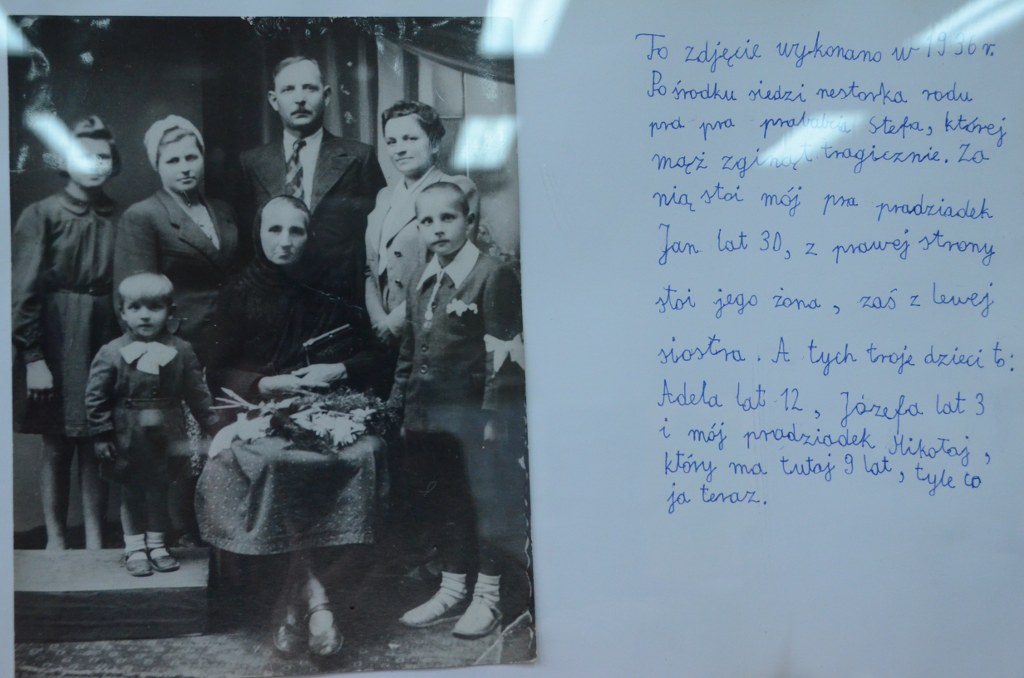 To zdjęcie wykonano w 1936 r.
Pośrodku siedzi nestorka rodu
pra pra prababcia Stefa, której
mąż zginął tragicznie. Za
nią stoi mój pra pradziadek
Jan lat 30, z prawej strony
stoi jego żona, zaś z lewej
siostra. A tych troje dzieci to:
Adela lat 12, Józefa lat 3
i mój pradziadek Mikołaj,
który ma tutaj 9 lat, tyle co
ja teraz.